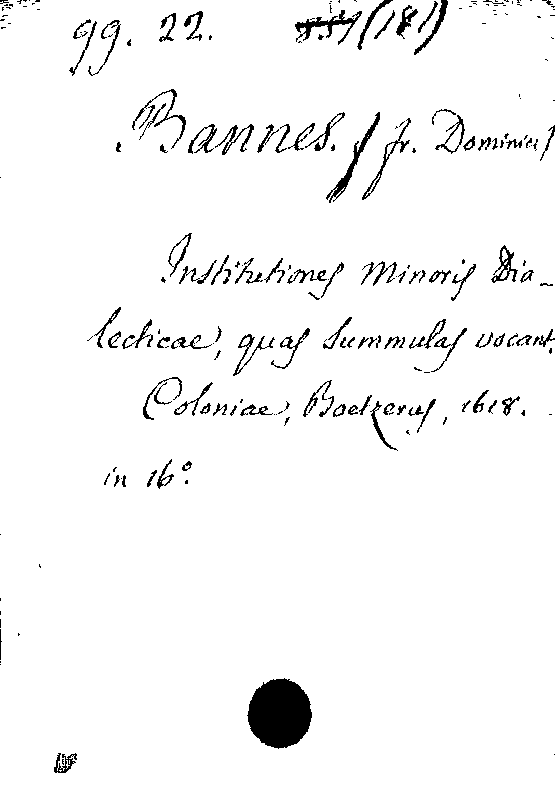 gg. 22. 851 (181)
Bannes. / fr. Dominici /
Institutiones Minoris Dia_
lecticae, quas Summulas vocant.
Coloniae, Boetzerus, 1618.
in 16º.